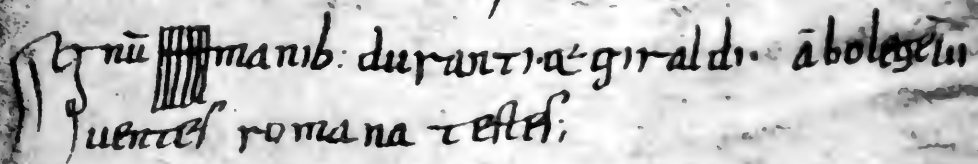 Signū manib: duranti·& giraldi· ābo lege ui
uentes romana testes;